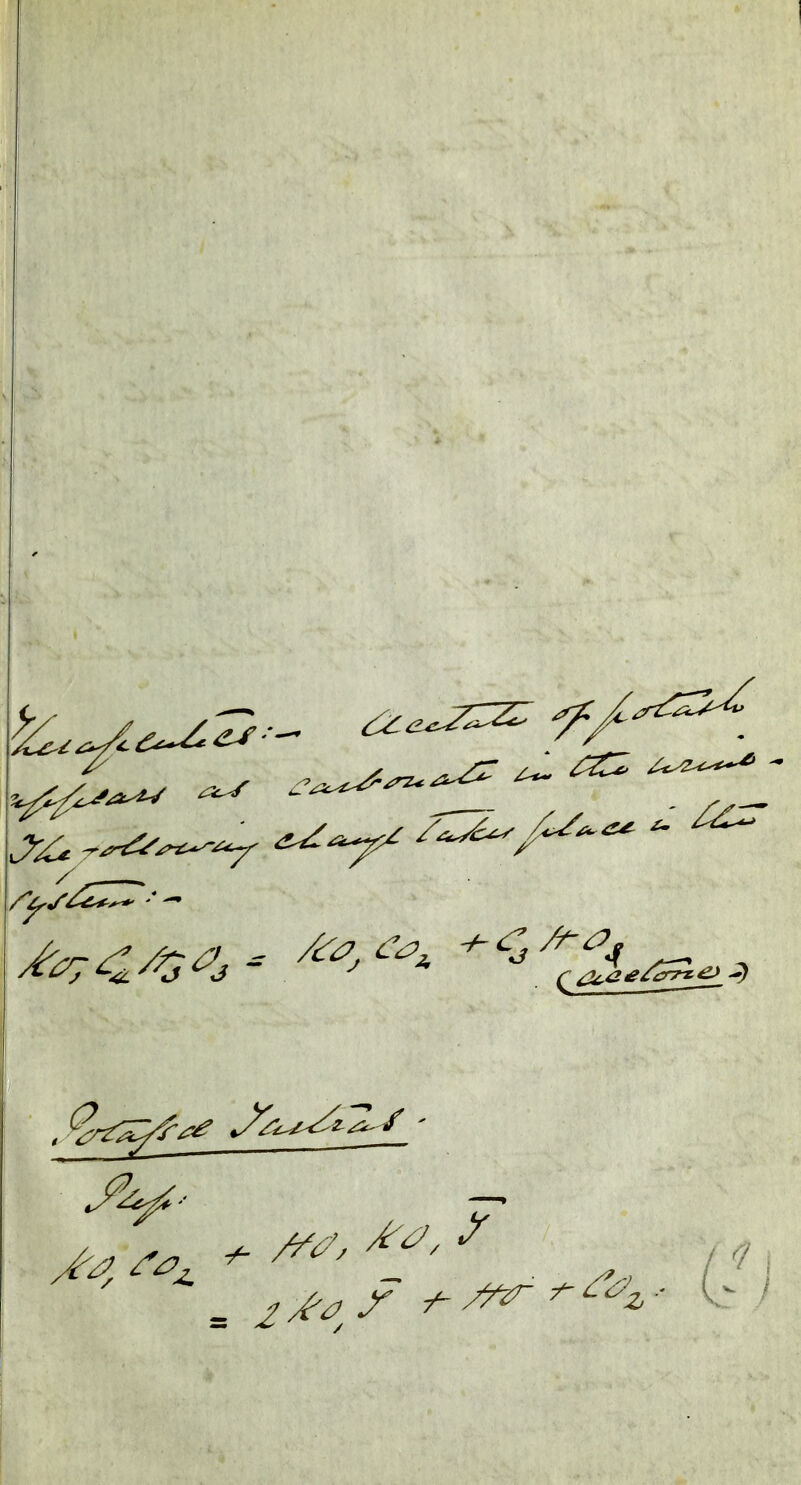 Therapeutics:— Acetate of potash
appears as carbonate in the urine—
The following change takes place in the
system:—
KO, C₄H₃O₃ = KO, CO₂ + C₃HO
(acetone)
Potassae Tartras.
Prep:
KO, CO₂ + HO, KO, T̄
= 2KO, T̄ + HO + CO₂. (?)